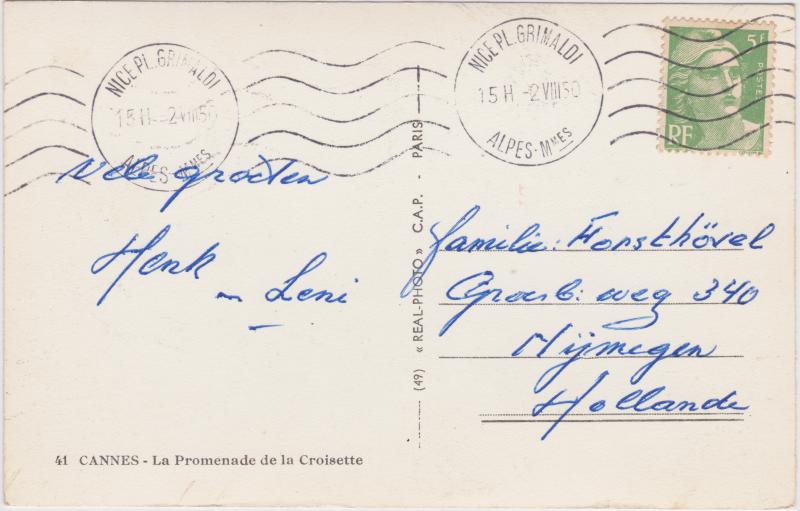 NICE PL. GRIMALDI
15H - 2 VIII 50
ALPES-MMES
NICE PL. GRIMALDI
15H - 2 VIII 50
ALPES-MMES
5F
POSTES
RF
Vele groeten
Henk
en Leni
(49) « REAL-PHOTO » C.A.P. - PARIS
familie: Forsthövel
Groesb: weg 340
Nijmegen
Hollande
41 CANNES - La Promenade de la Croisette